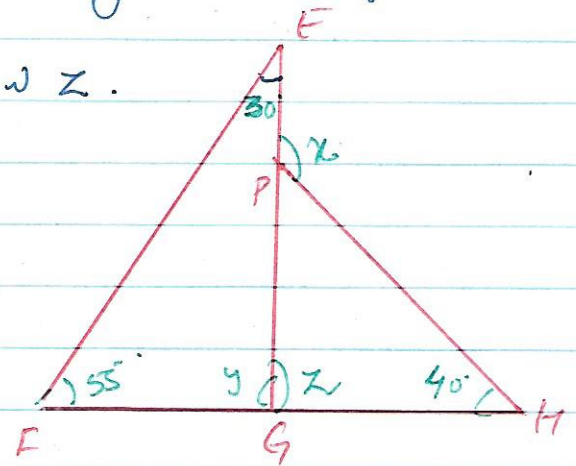 E
z.
30
x
P
55°
y
z
40°
F
G
H